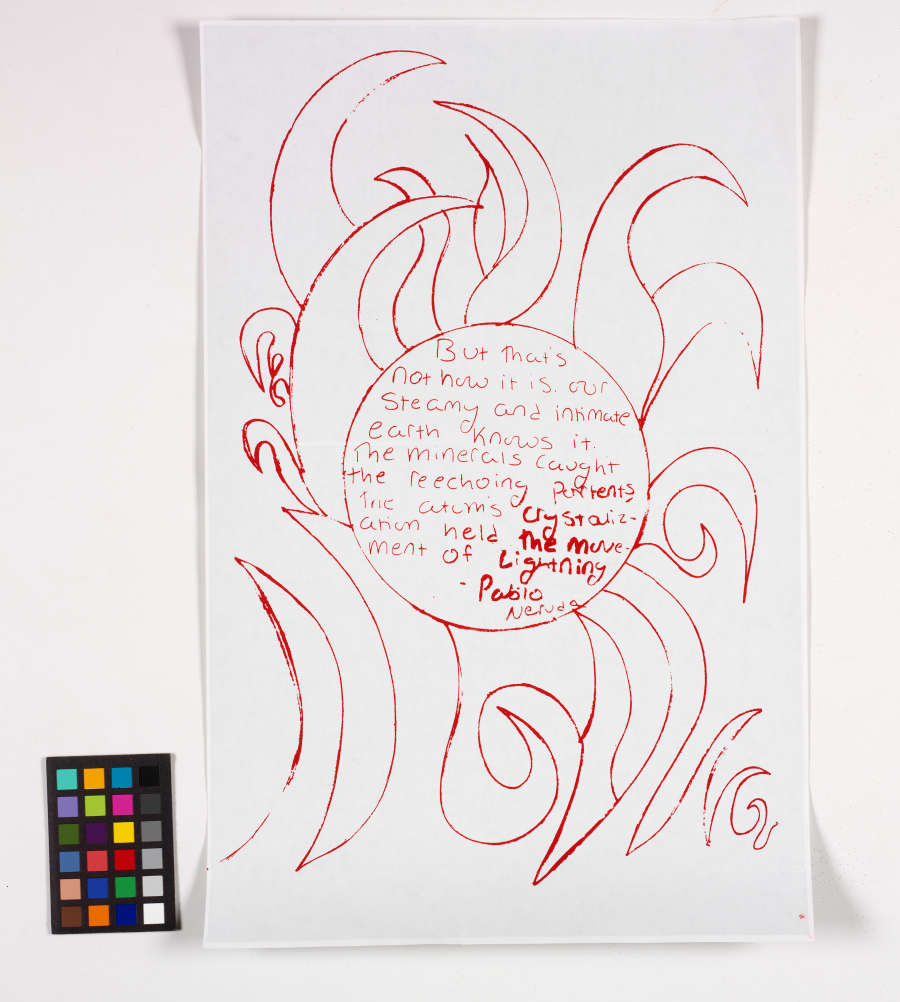 But that's
not how it is. our
steamy and intimate
earth knows it.
The minerals caught
the reechoing
The atoms crystaliz-
ation held the move-
ment of Lightning
- Pablo
Neruda